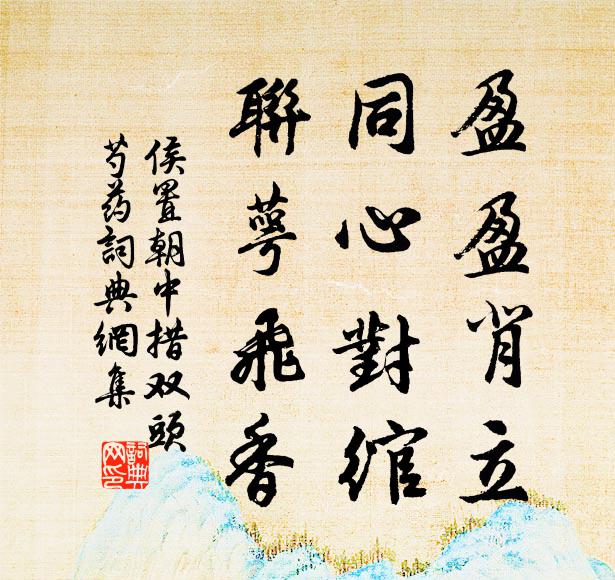 盈盈肖立
同心對綰
聯萼飛香
侯置朝中措双頭
芍药詞典網集
詞典
网印